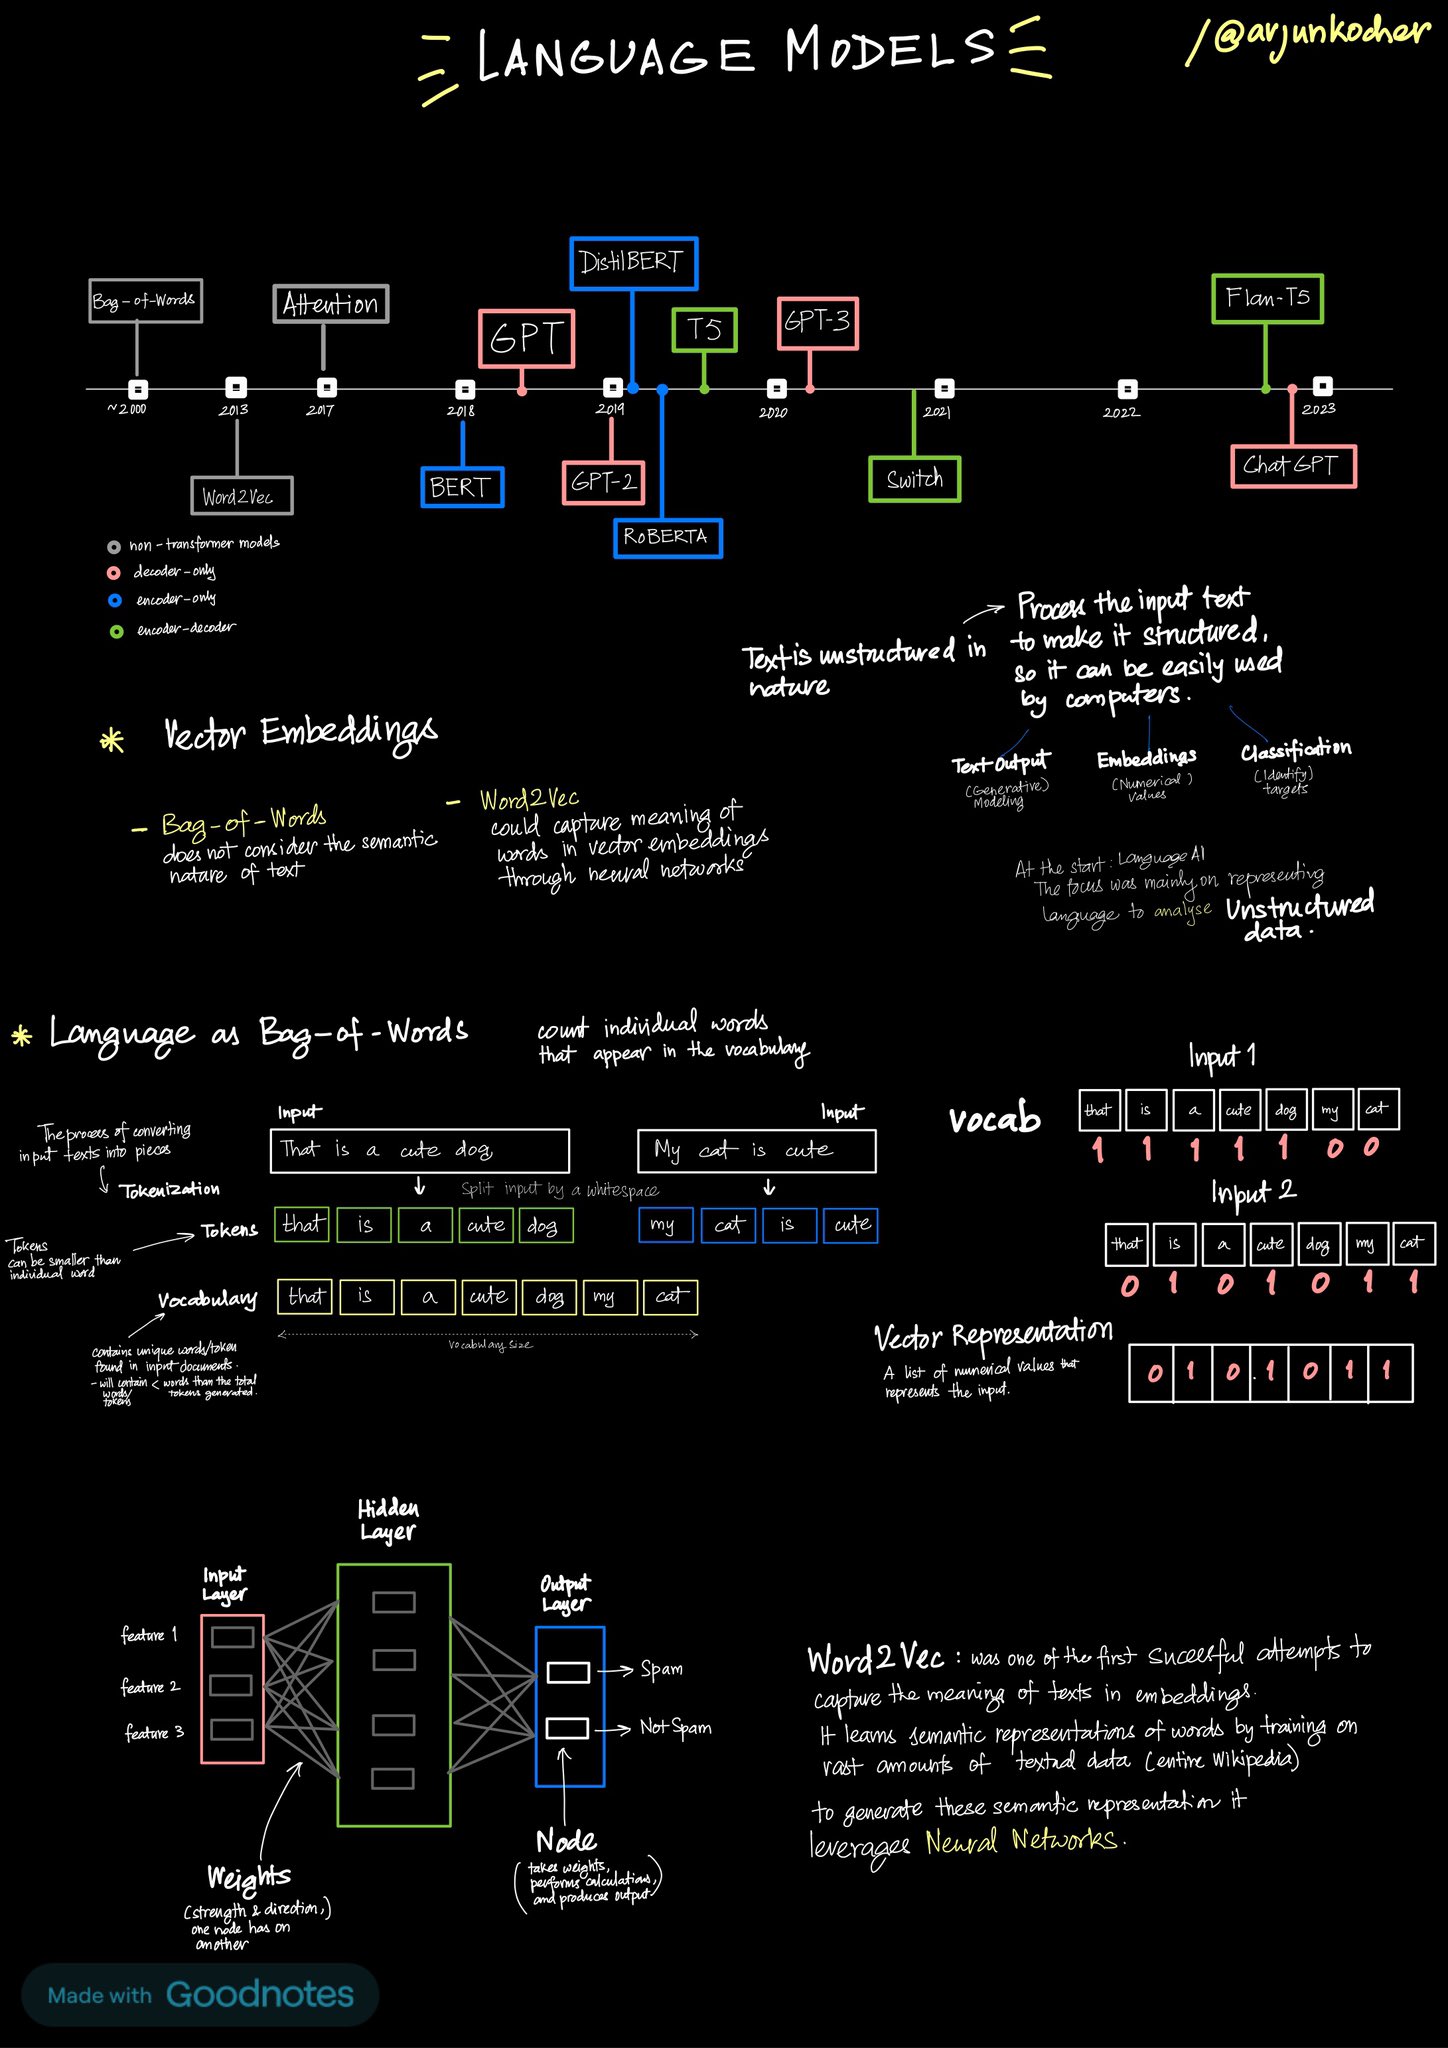 LANGUAGE MODELS
/@arjunkocher
DistilBERT
Bag-of-Words
Attention
GPT
T5
GPT-3
Flan-T5
~2000
2013
2017
2018
2019
2020
2021
2022
2023
Word2Vec
BERT
GPT-2
RoBERTA
Switch
ChatGPT
non-transformer models
decoder-only
encoder-only
encoder-decoder
Text is unstructured in
nature
Process the input text
to make it structured,
so it can be easily used
by computers.
Text Output
(Generative)
Modeling
Embeddings
(Numerical)
values
Classification
(Identify)
targets
* Vector Embeddings
- Bag-of-Words
does not consider the semantic
nature of text
- Word2Vec
could capture meaning of
words in vector embeddings
through neural networks
At the start: Language AI
The focus was mainly on representing
language to analyse Unstructured
data.
* Language as Bag-of-Words
count individual words
that appear in the vocabulary
The process of converting
input texts into pieces
Tokenization
Input
That is a cute dog
Input
My cat is cute
Split input by a whitespace
Tokens
that is a cute dog
my cat is cute
Tokens
can be smaller than
individual word
Vocabulary
that is a cute dog my cat
vocabulary size
contains unique words/token
found in input documents.
- will contain < words than the total
words/ tokens generated.
tokens
vocab
Input 1
that is a cute dog my cat
1 1 1 1 1 0 0
Input 2
that is a cute dog my cat
0 1 0 1 0 1 1
Vector Representation
A list of numerical values that
represents the input.
0 1 0 . 1 0 1 1
Hidden
Layer
Input
Layer
Output
Layer
feature 1
feature 2
feature 3
Spam
Not Spam
Weights
(strength & direction,)
one node has on
another
Node
(takes weights,
performs calculations,
and produces output)
Word2Vec : was one of the first sucessful attempts to
capture the meaning of texts in embeddings.
It learns semantic representations of words by training on
vast amounts of textual data (entire Wikipedia)
to generate these semantic representation it
leverages Neural Networks.
Made with Goodnotes